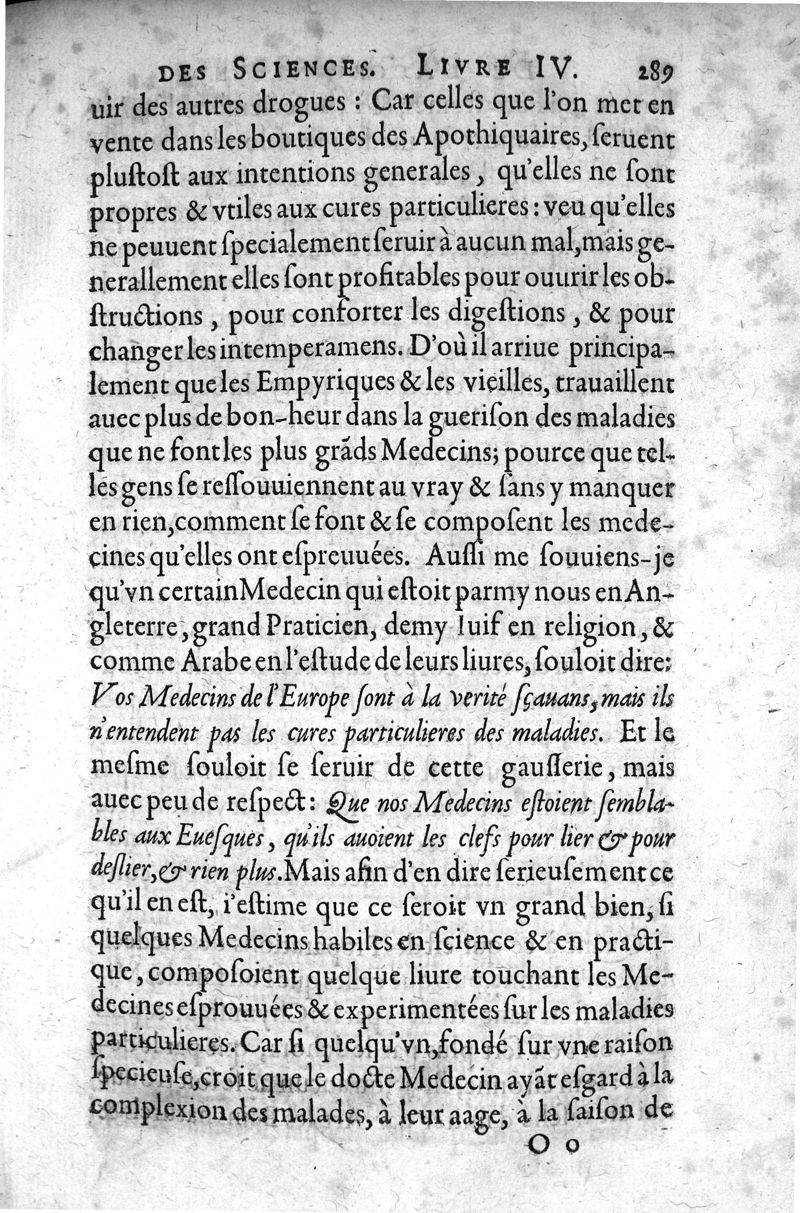 DES SCIENCES. LIVRE IV. 289
uir des autres drogues : Car celles que l'on met en
vente dans les boutiques des Apothiquaires, ſeruent
pluſtoſt aux intentions generales, qu'elles ne ſont
propres & vtiles aux cures particulieres : veu qu'elles
ne peuuent ſpecialement ſeruir à aucun mal, mais ge-
nerallement elles ſont profitables pour ouurir les ob-
ſtructions, pour conforter les digeſtions, & pour
changer les intemperamens. D'où il arriue principa-
lement que les Empyriques & les vieilles, trauaillent
auec plus de bon-heur dans la gueriſon des maladies
que ne font les plus grãds Medecins; pource que tel-
les gens ſe reſſouuiennent au vray & ſans y manquer
en rien, comment ſe font & ſe compoſent les mede-
cines qu'elles ont eſpreuuées. Auſſi me ſouuiens-je
qu'vn certain Medecin qui eſtoit parmy nous en An-
gleterre, grand Praticien, demy Iuif en religion, &
comme Arabe en l'eſtude de leurs liures, ſouloit dire:
Vos Medecins de l'Europe ſont à la verité ſçauans, mais ils
n'entendent pas les cures particulieres des maladies. Et le
meſme ſouloit ſe ſeruir de cette gauſſerie, mais
auec peu de reſpect: Que nos Medecins eſtoient ſembla-
bles aux Eueſques, qu'ils auoient les clefs pour lier & pour
deſlier, & rien plus. Mais afin d'en dire ſerieuſement ce
qu'il en eſt, i'eſtime que ce ſeroit vn grand bien, ſi
quelques Medecins habiles en ſcience & en practi-
que, compoſoient quelque liure touchant les Me-
decines eſprouuées & experimentées ſur les maladies
particulieres. Car ſi quelqu'vn, fondé ſur vne raiſon
ſpecieuſe, croit que le docte Medecin ayãt eſgard à la
complexion des malades, à leur aage, à la ſaiſon de
O o